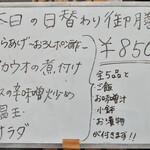 本日の日替わり御膳
¥850
らあげ〜おろしポン酢〜
カウオの煮付け
スの辛味噌炒め
温玉
サラダ
全5品と
ご飯
お味噌汁
小鉢
お漬物
が付きます!!